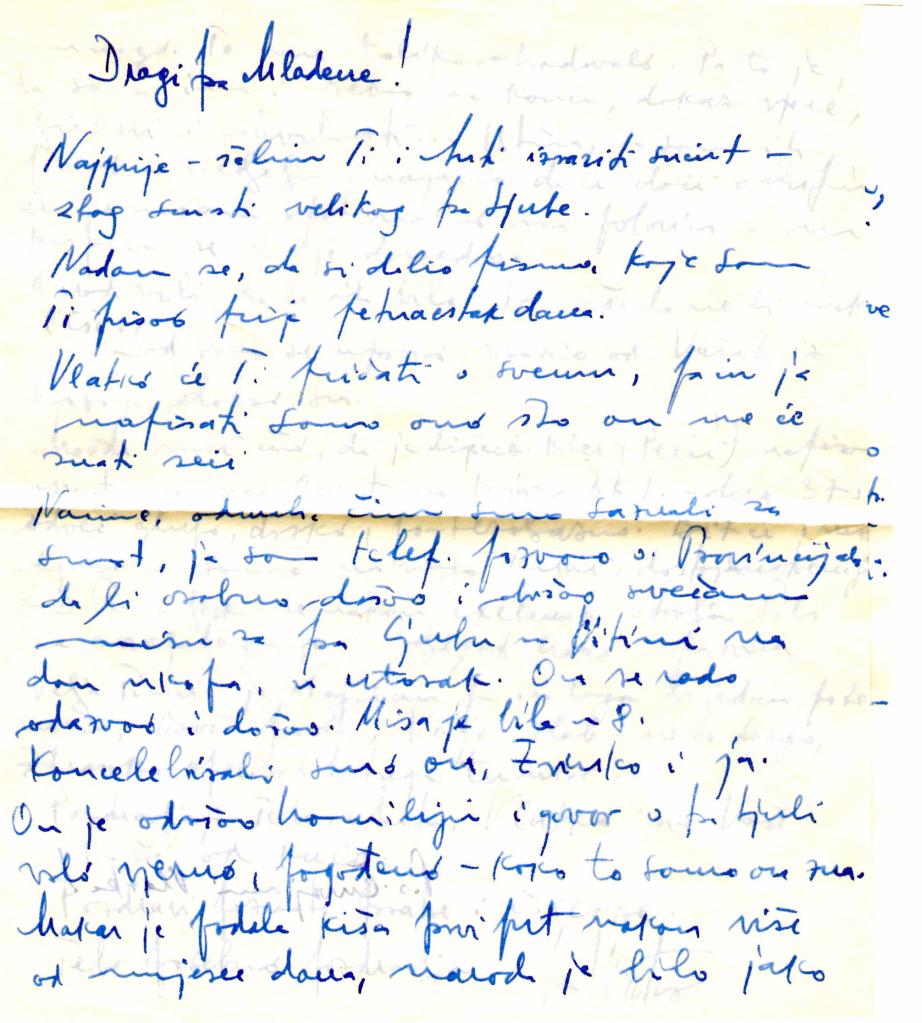 Dragi fra Mladene!
Najprije – želim Ti i Anti izraziti sućut –
zbog smrti velikog fra Ljube.
Nadam se, da si dobio pismo, koje sam
Ti pisao prije petnaestak dana.
Vlatko će Ti pričati o svemu, pa ću ja
napisati samo ono što on ne će
znati reći
Naime, odmah, čim smo saznali za
smrt, ja sam telef. pozvao o. Provincijala
da bi osobno došao i držao svečanu
misu za fra Ljubu u Vitini na
dan ukopa, u utorak. On se rado
odazvao i došao. Misa je bila u 8.
Koncelebrirali smo on, Zvinko i ja.
On je održao homiliju i govor o fra Ljubi
vrlo vjerno, pogođeno – kako to samo on zna.
Makar je padala kiša prvi put nakon više
od mjesec dana, naroda je bilo jako